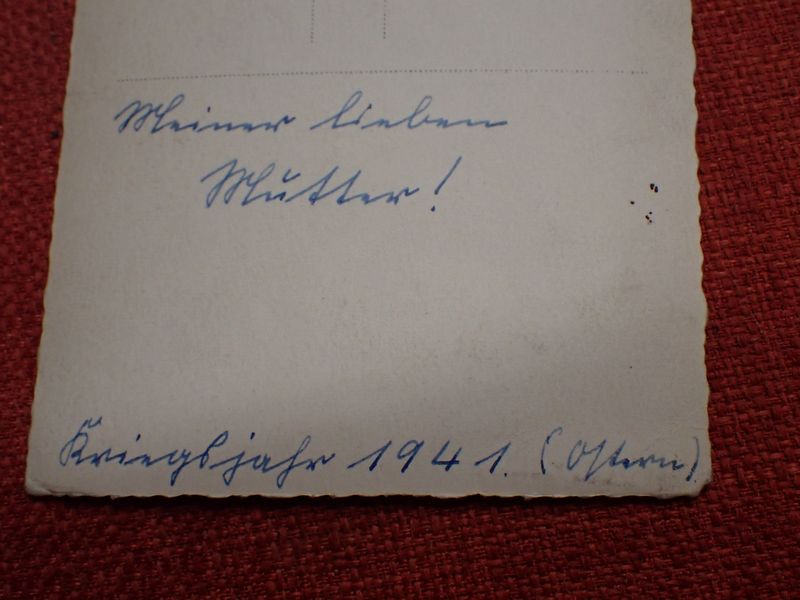 Meiner lieben
Mutter!
Kriegsjahr 1941. (Ostern)